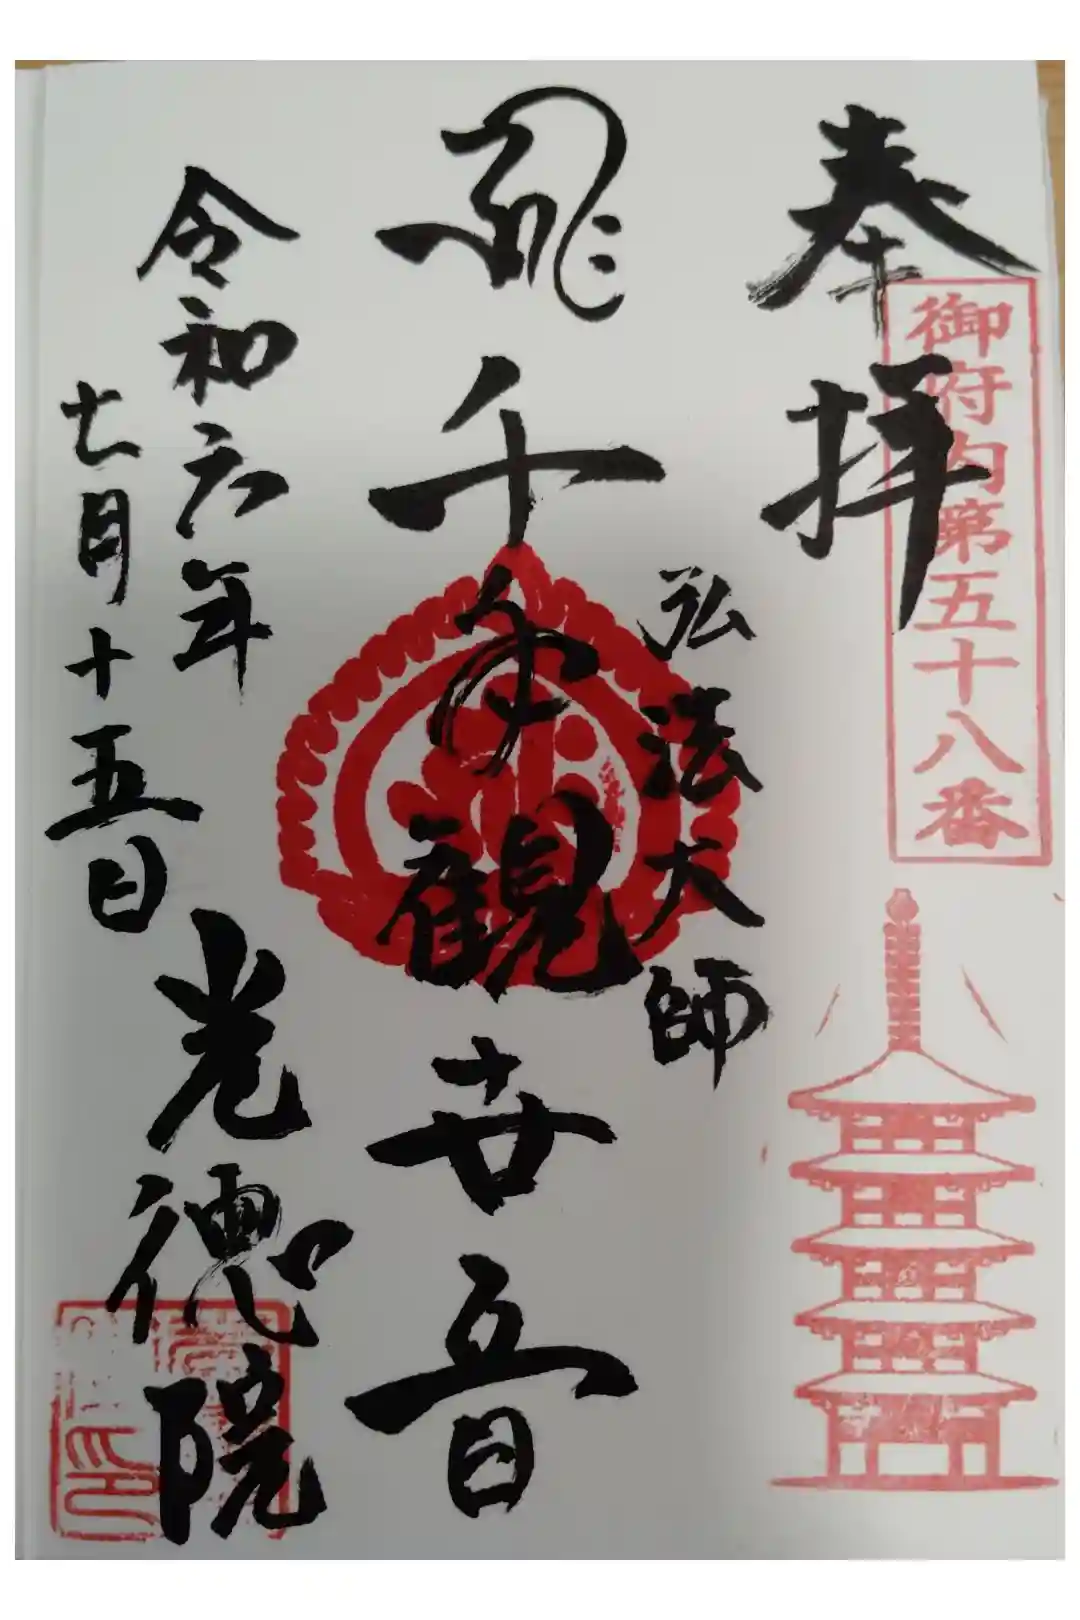 奉拝
御府内第五十八番
弘法大師
千手観世音
令和六年
七月十五日
光德院